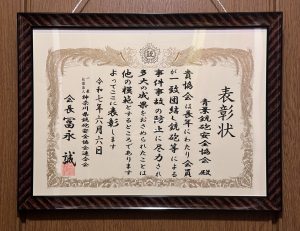 表彰状
青葉銃砲安全協会 殿
貴協会は長年にわたり会員
が一致団結し銃砲等による
事件事故の防止に尽力され
多大の成果をおさめられたことは
他の模範とするところであります
よってここに表彰します
令和七年六月六日
神奈川県銃砲安全協会連合会
会長 冨永 誠